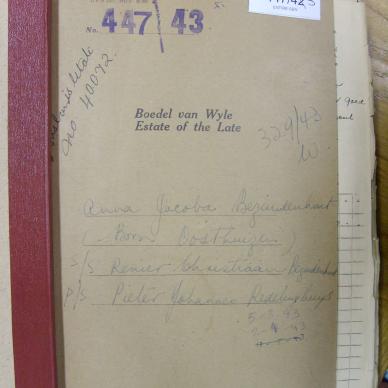 No. 447/43
no 40092.
Boedel van Wyle
Estate of the Late
329/43
W.
Anna Jacoba Bezuidenhout
(Born Oosthuizen)
S/S Renier Christiaan Bezuidenhout
P/S Pieter Johannes Redelinghuys
5-3-43
2-4-43
good